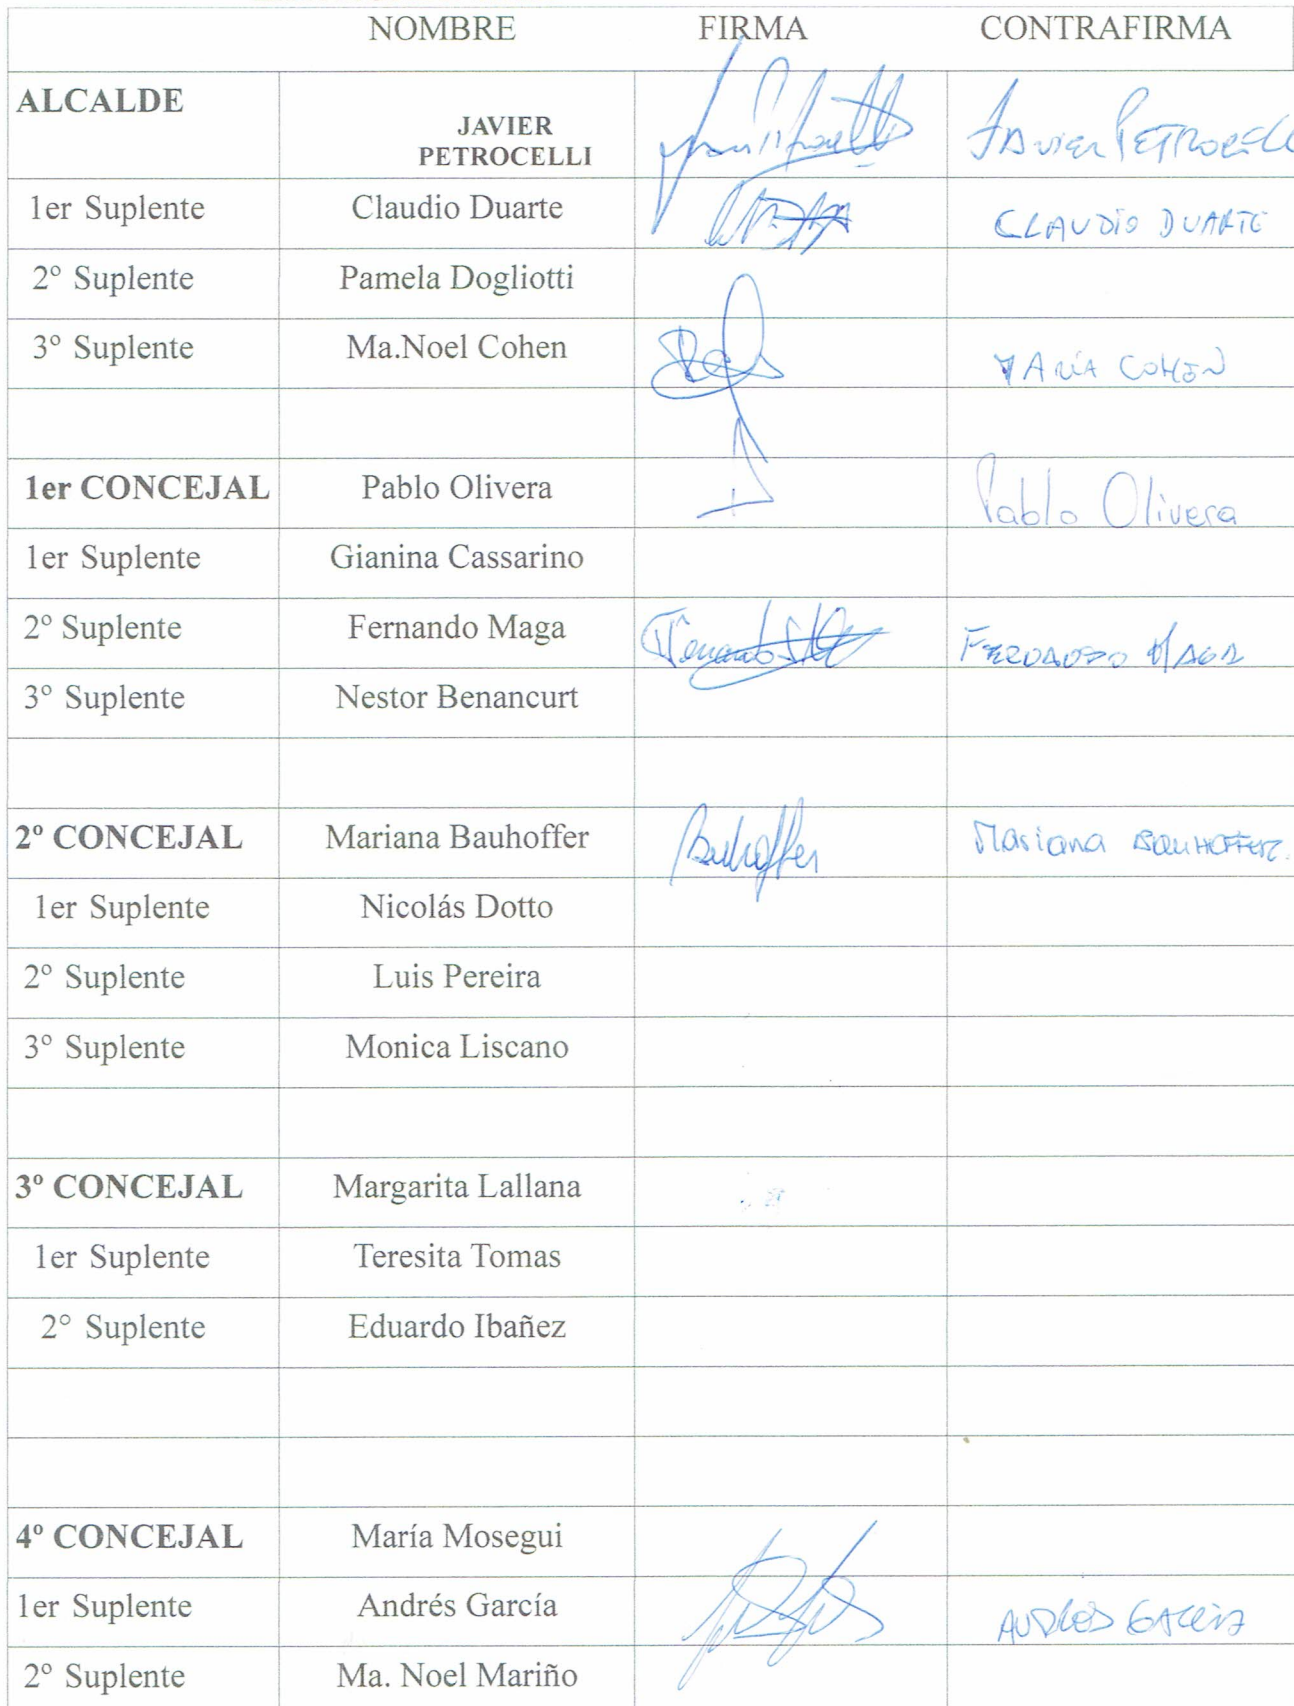 NOMBRE FIRMA CONTRAFIRMA
ALCALDE JAVIER PETROCELLI JAVIER PETROCELLI
1er Suplente Claudio Duarte CLAUDIO DUARTE
2° Suplente Pamela Dogliotti
3° Suplente Ma.Noel Cohen MARÍA COHEN
1er CONCEJAL Pablo Olivera Pablo Olivera
1er Suplente Gianina Cassarino
2° Suplente Fernando Maga FERNANDO MAGA
3° Suplente Nestor Benancurt
2º CONCEJAL Mariana Bauhoffer Bauhoffer Mariana BAUHOFFER.
1er Suplente Nicolás Dotto
2° Suplente Luis Pereira
3° Suplente Monica Liscano
3º CONCEJAL Margarita Lallana
1er Suplente Teresita Tomas
2° Suplente Eduardo Ibañez
4º CONCEJAL María Mosegui
1er Suplente Andrés García ANDRÉS GARCÍA
2° Suplente Ma. Noel Mariño